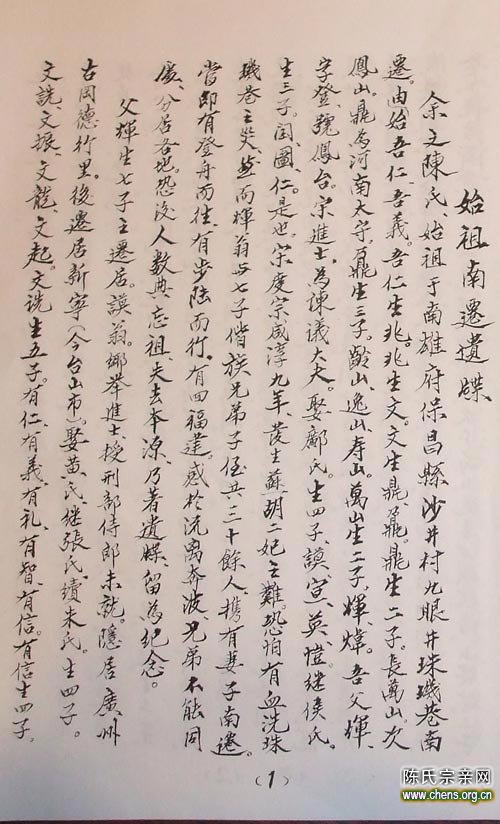 始祖南遷遺牒
余之陳氏始祖于南雄府保昌縣沙井村九眼井珠璣巷南
遷。由始吾仁、吾義。吾仁生兆。兆生文。文生鼎、鼐。鼎生二子。長萬山。次
鳳山。鼎為河南太守。鼐生三子。齡山、逸山、寿山。萬山生二子，輝、煒。吾父輝、
字登、號鳳台。宗進士。為諫議大夫。娶鄺氏。生四子、謨、宣、英、愷。继侯氏。
生三子。闰、圖、仁。是也。宋度宗咸淳九年、發生蘇胡二妃之難。恐怕有血洗珠
璣巷之災。而輝翁与七子偕族兄弟子侄共三十餘人、携有妻子南遷。
當即有登舟而往、有步陆而行。有四福建。感於流离奔波兄弟不能同
處、分居各地。恐没人数典忘祖、失去本源、乃著遺牒、留為紀念。
父輝生七子之遷居。謨翁。鄉举進士、授刑部侍郎未就。隱居廣州
古岡德行里。後遷居新寧（今台山市。娶黄氏、继張氏、續朱氏。生四子。
文詵、文振、文龍、文起。文詵生五子。有仁、有義、有礼、有智、有信。有信生四子。
（1）
陈氏宗亲网
www.chens.org.cn